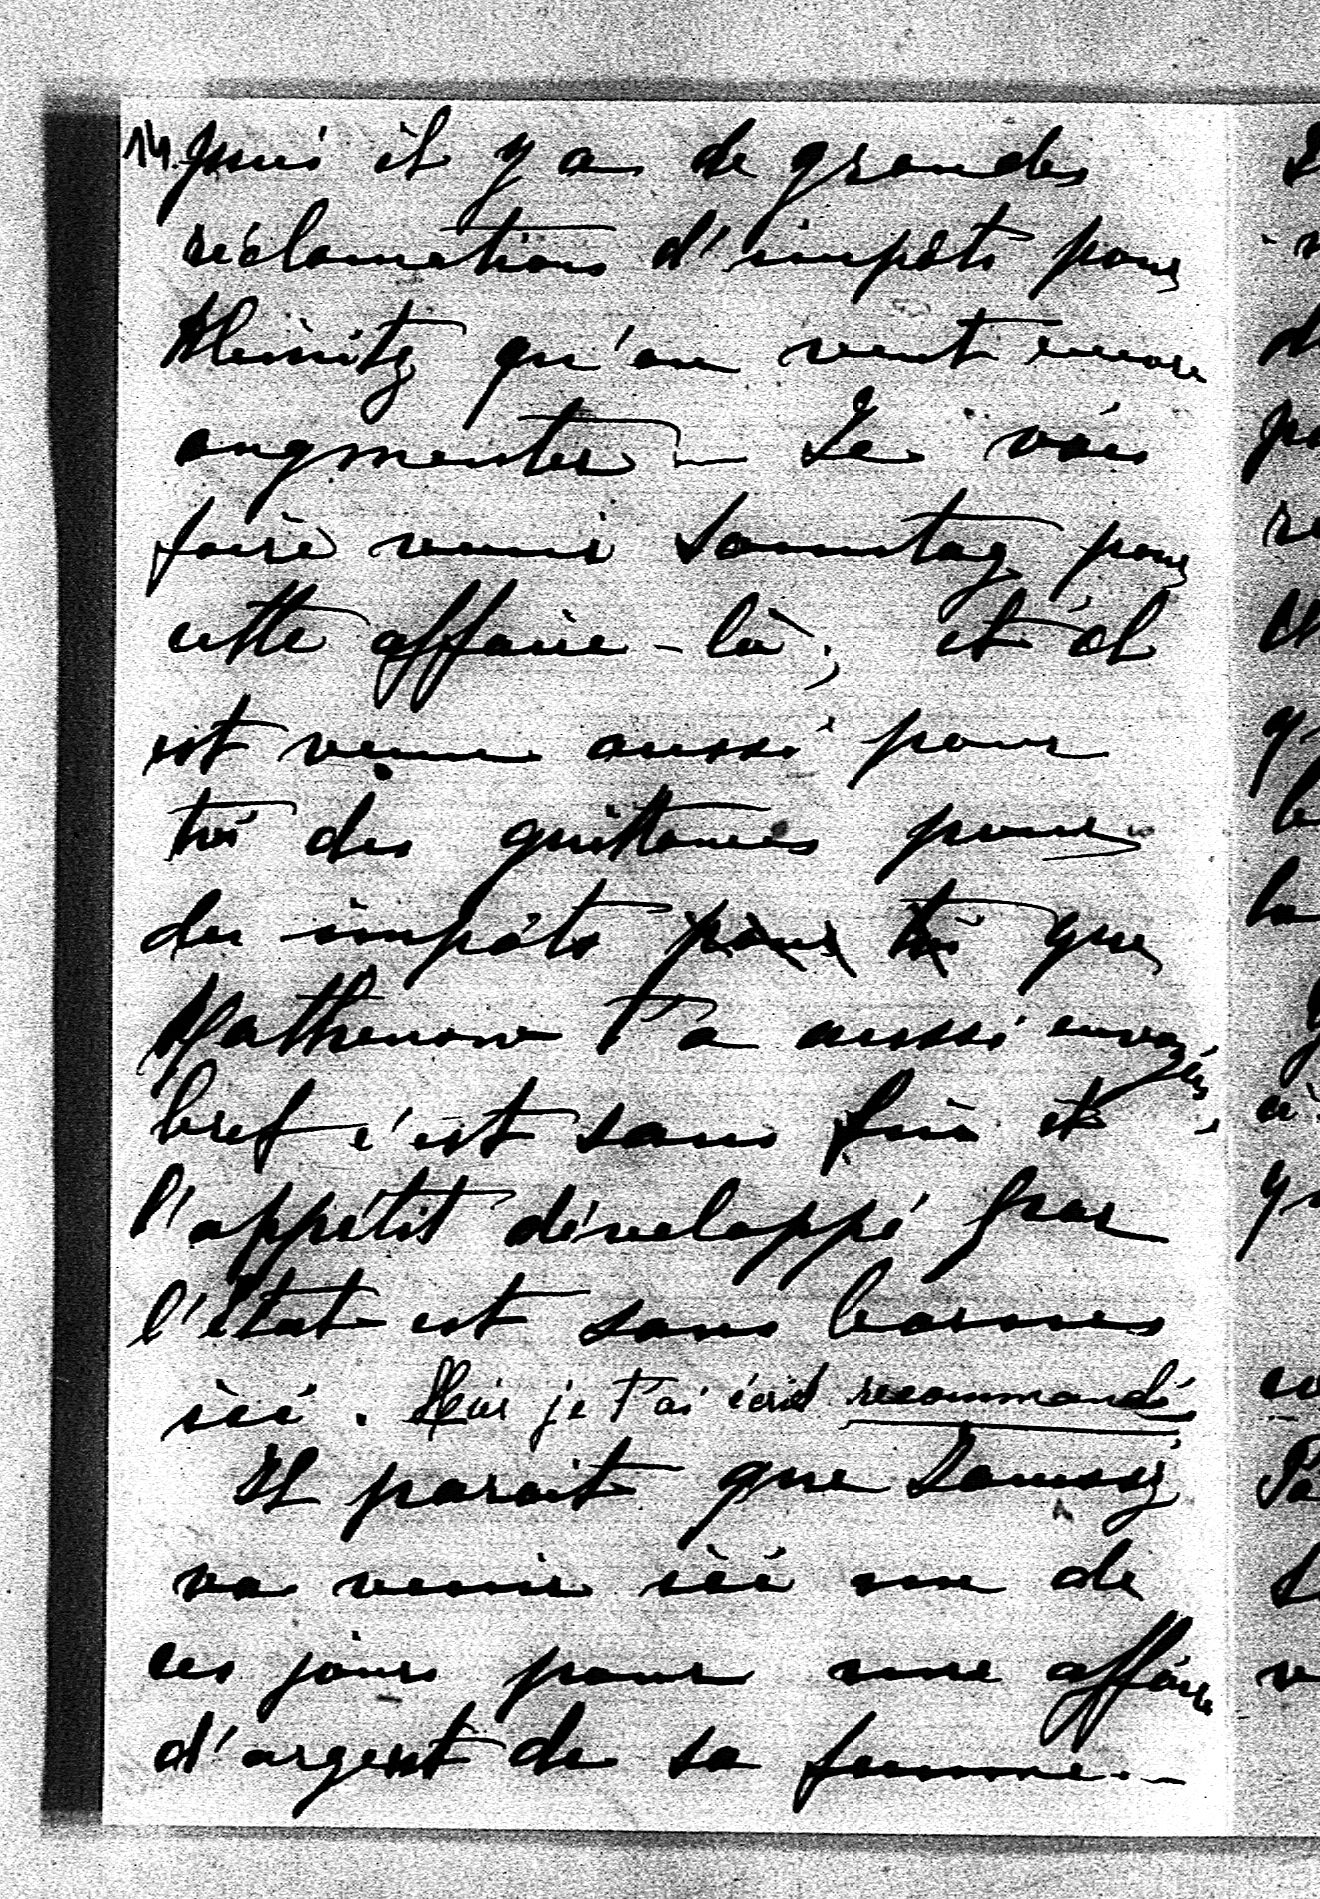 14. puis il y a de grandes
réclamations d'impôts pour
qu'on veut encore
augmenter — Je vais
faire venir Sonntag pour
cette affaire-là; et il
est venu aussi pour
toi des quittances pour
des impôts pour toi que
t'a aussi envoyés,
bref c'est sans fin et
l'appétit développé par
l'état est sans bornes
ici. Hier je t'ai écrit recommandé
Il parait que
va venir ici un de
ces jours pour une affaire
d'argent de sa femme. —